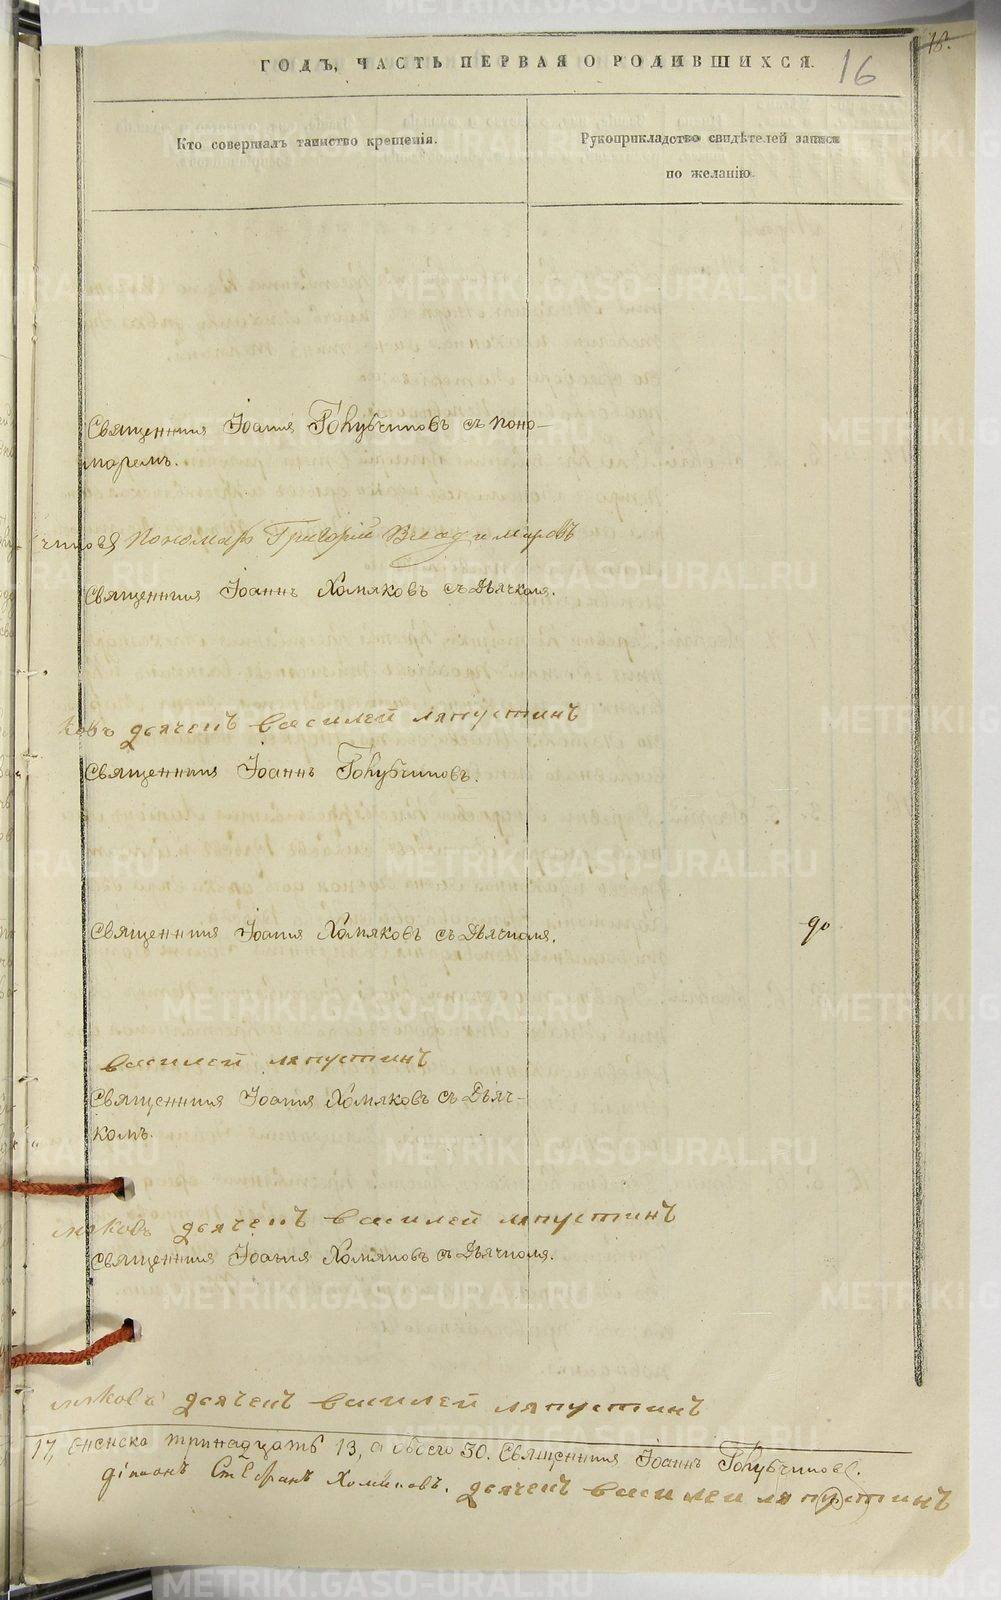 ГОДЪ, ЧАСТЬ ПЕРВАЯ О РОДИВШИХСЯ.
16
Кто совершалъ таинство крещенія.
Рукоприкладство свидѣтелей записи
по желанію.
Священникъ Іоаннъ Голубчиковъ съ Поно-
маремъ.
Пономарь Григорій Владимировъ
Священникъ Іоаннъ Хомяковъ съ Дьячкомъ.
ковъ дьячекъ василей ляпустинъ
Священникъ Іоаннъ Голубчиковъ.
Священникъ Іоаннъ Хомяковъ съ Дьячкомъ.
василей ляпустинъ
Священникъ Іоаннъ Хомяковъ съ Дьяч-
комъ.
мяковъ дьячекъ василей ляпустинъ
Священникъ Іоаннъ Хомяковъ съ Дьячкомъ.
мяковъ дьячекъ василей ляпустинъ
17, женска тринадцать 13, а обоего 30. Священникъ Іоаннъ Голубчиковъ.
діаконъ Стефанъ Хомяковъ. дьячекъ василей ляпустинъ
METRIKI.GASO-URAL.RU